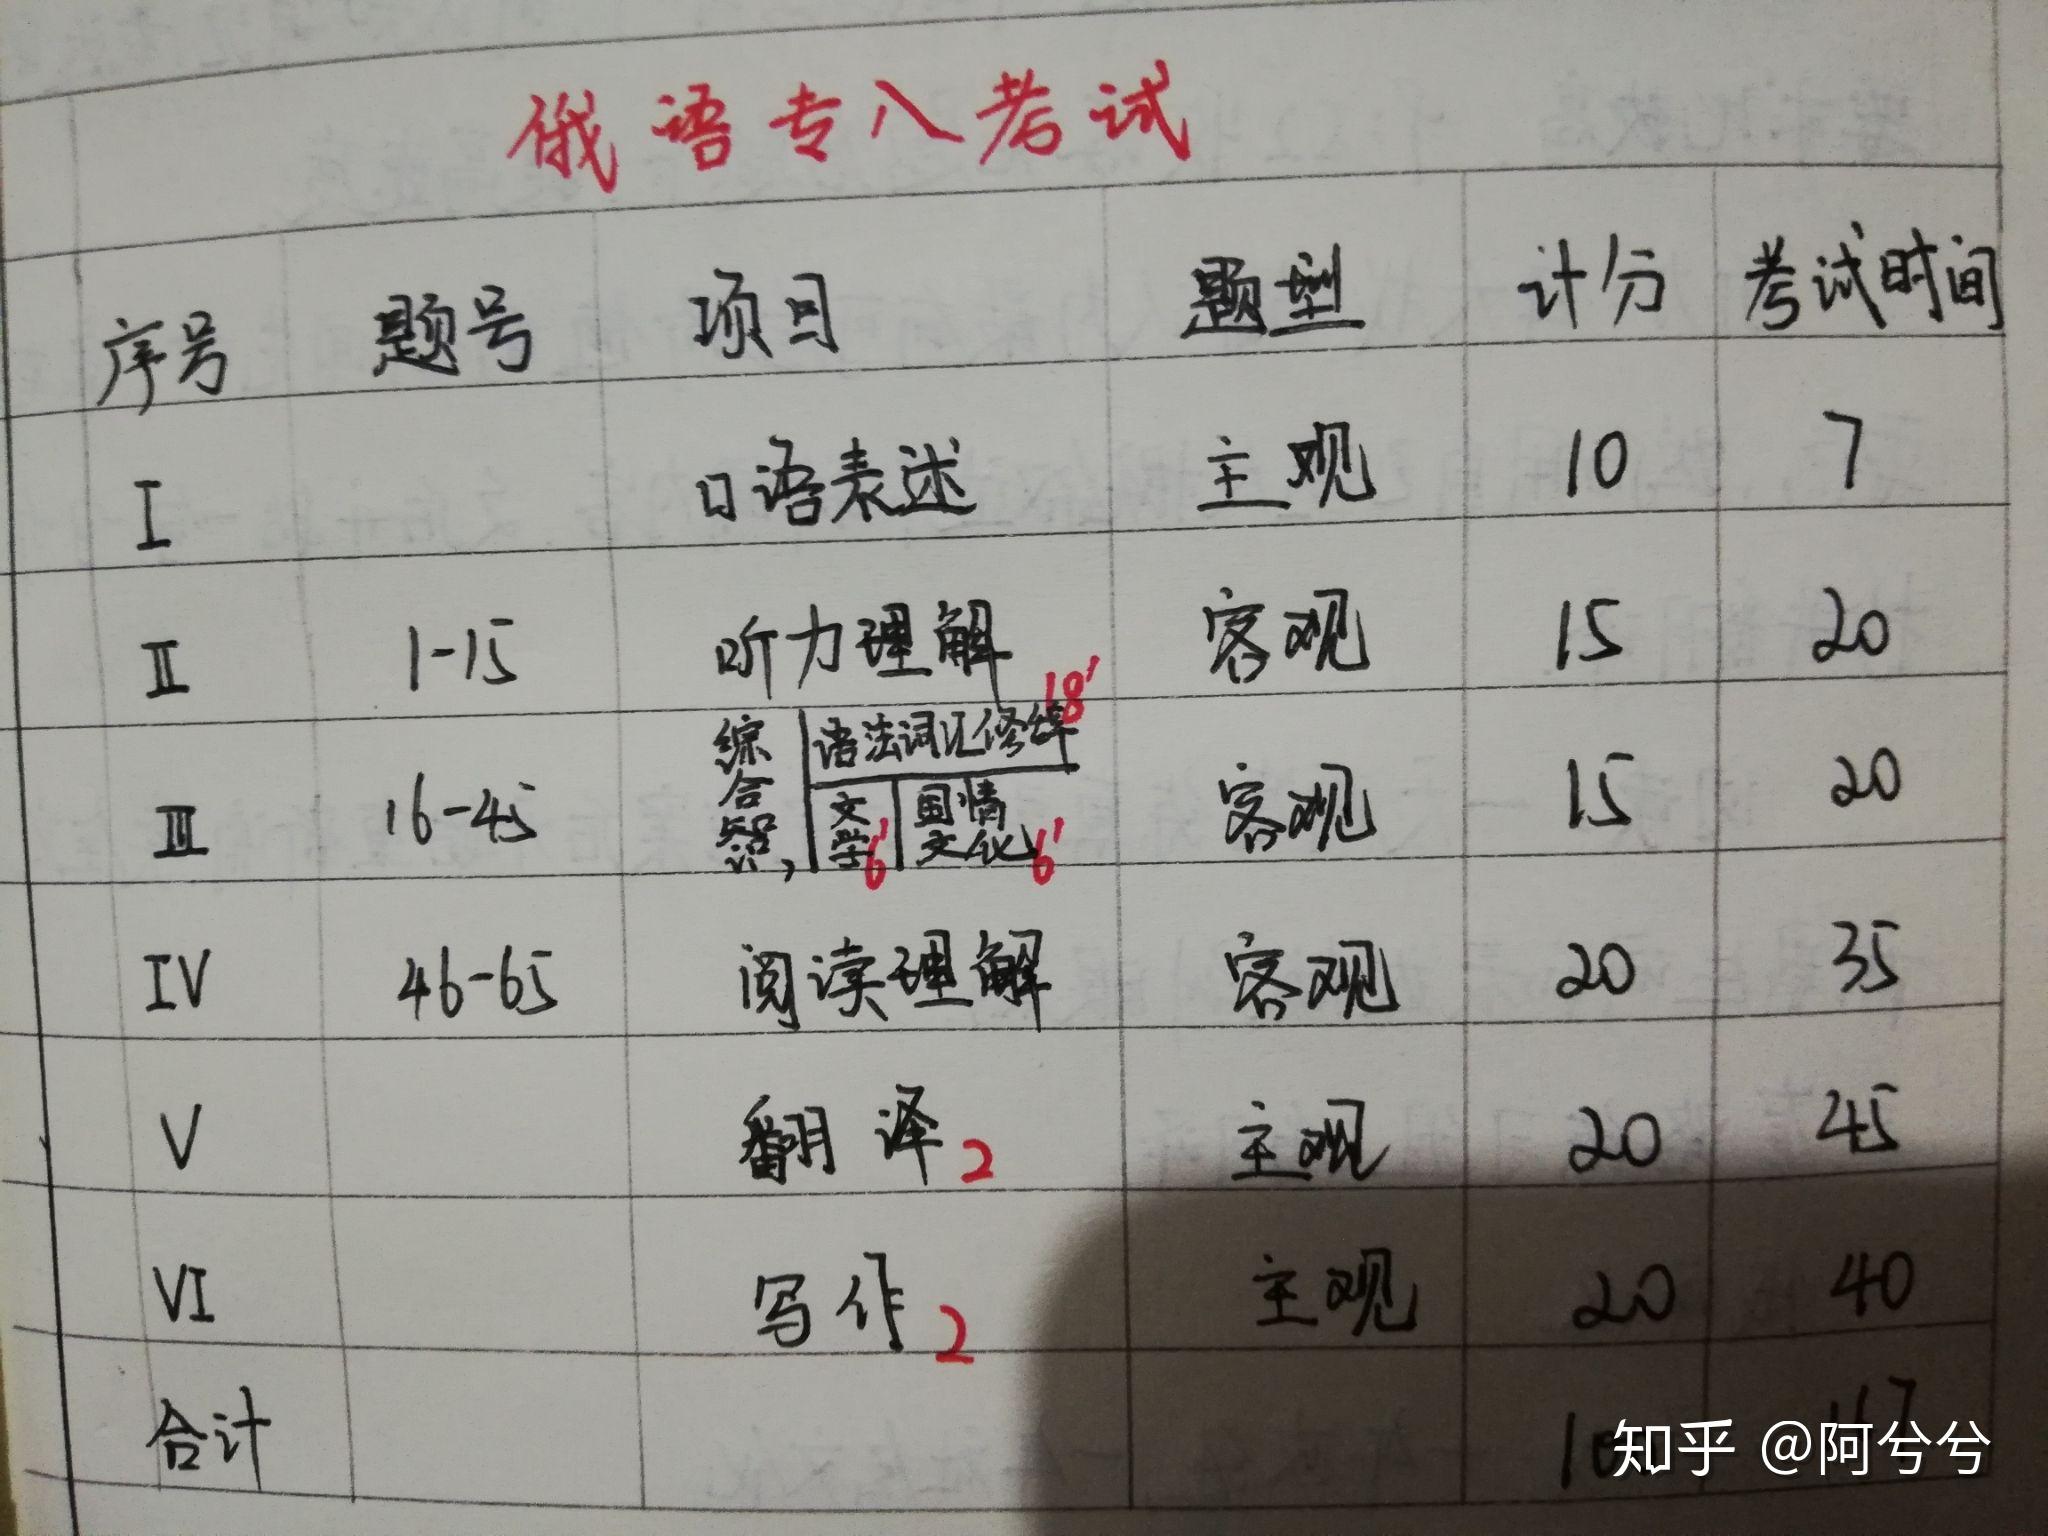 俄语专八考试
序号 题号 项目 题型 计分 考试时间
I 口语表述 主观 10 7
II 1-15 听力理解 客观 15 20
III 16-45 综合知识, 语法词汇修辞 18' 文学 6' 国情文化 6' 客观 15 20
IV 46-65 阅读理解 客观 20 35
V 翻译 2 主观 20 45
VI 写作 2 主观 20 40
合计
知乎 @阿兮兮